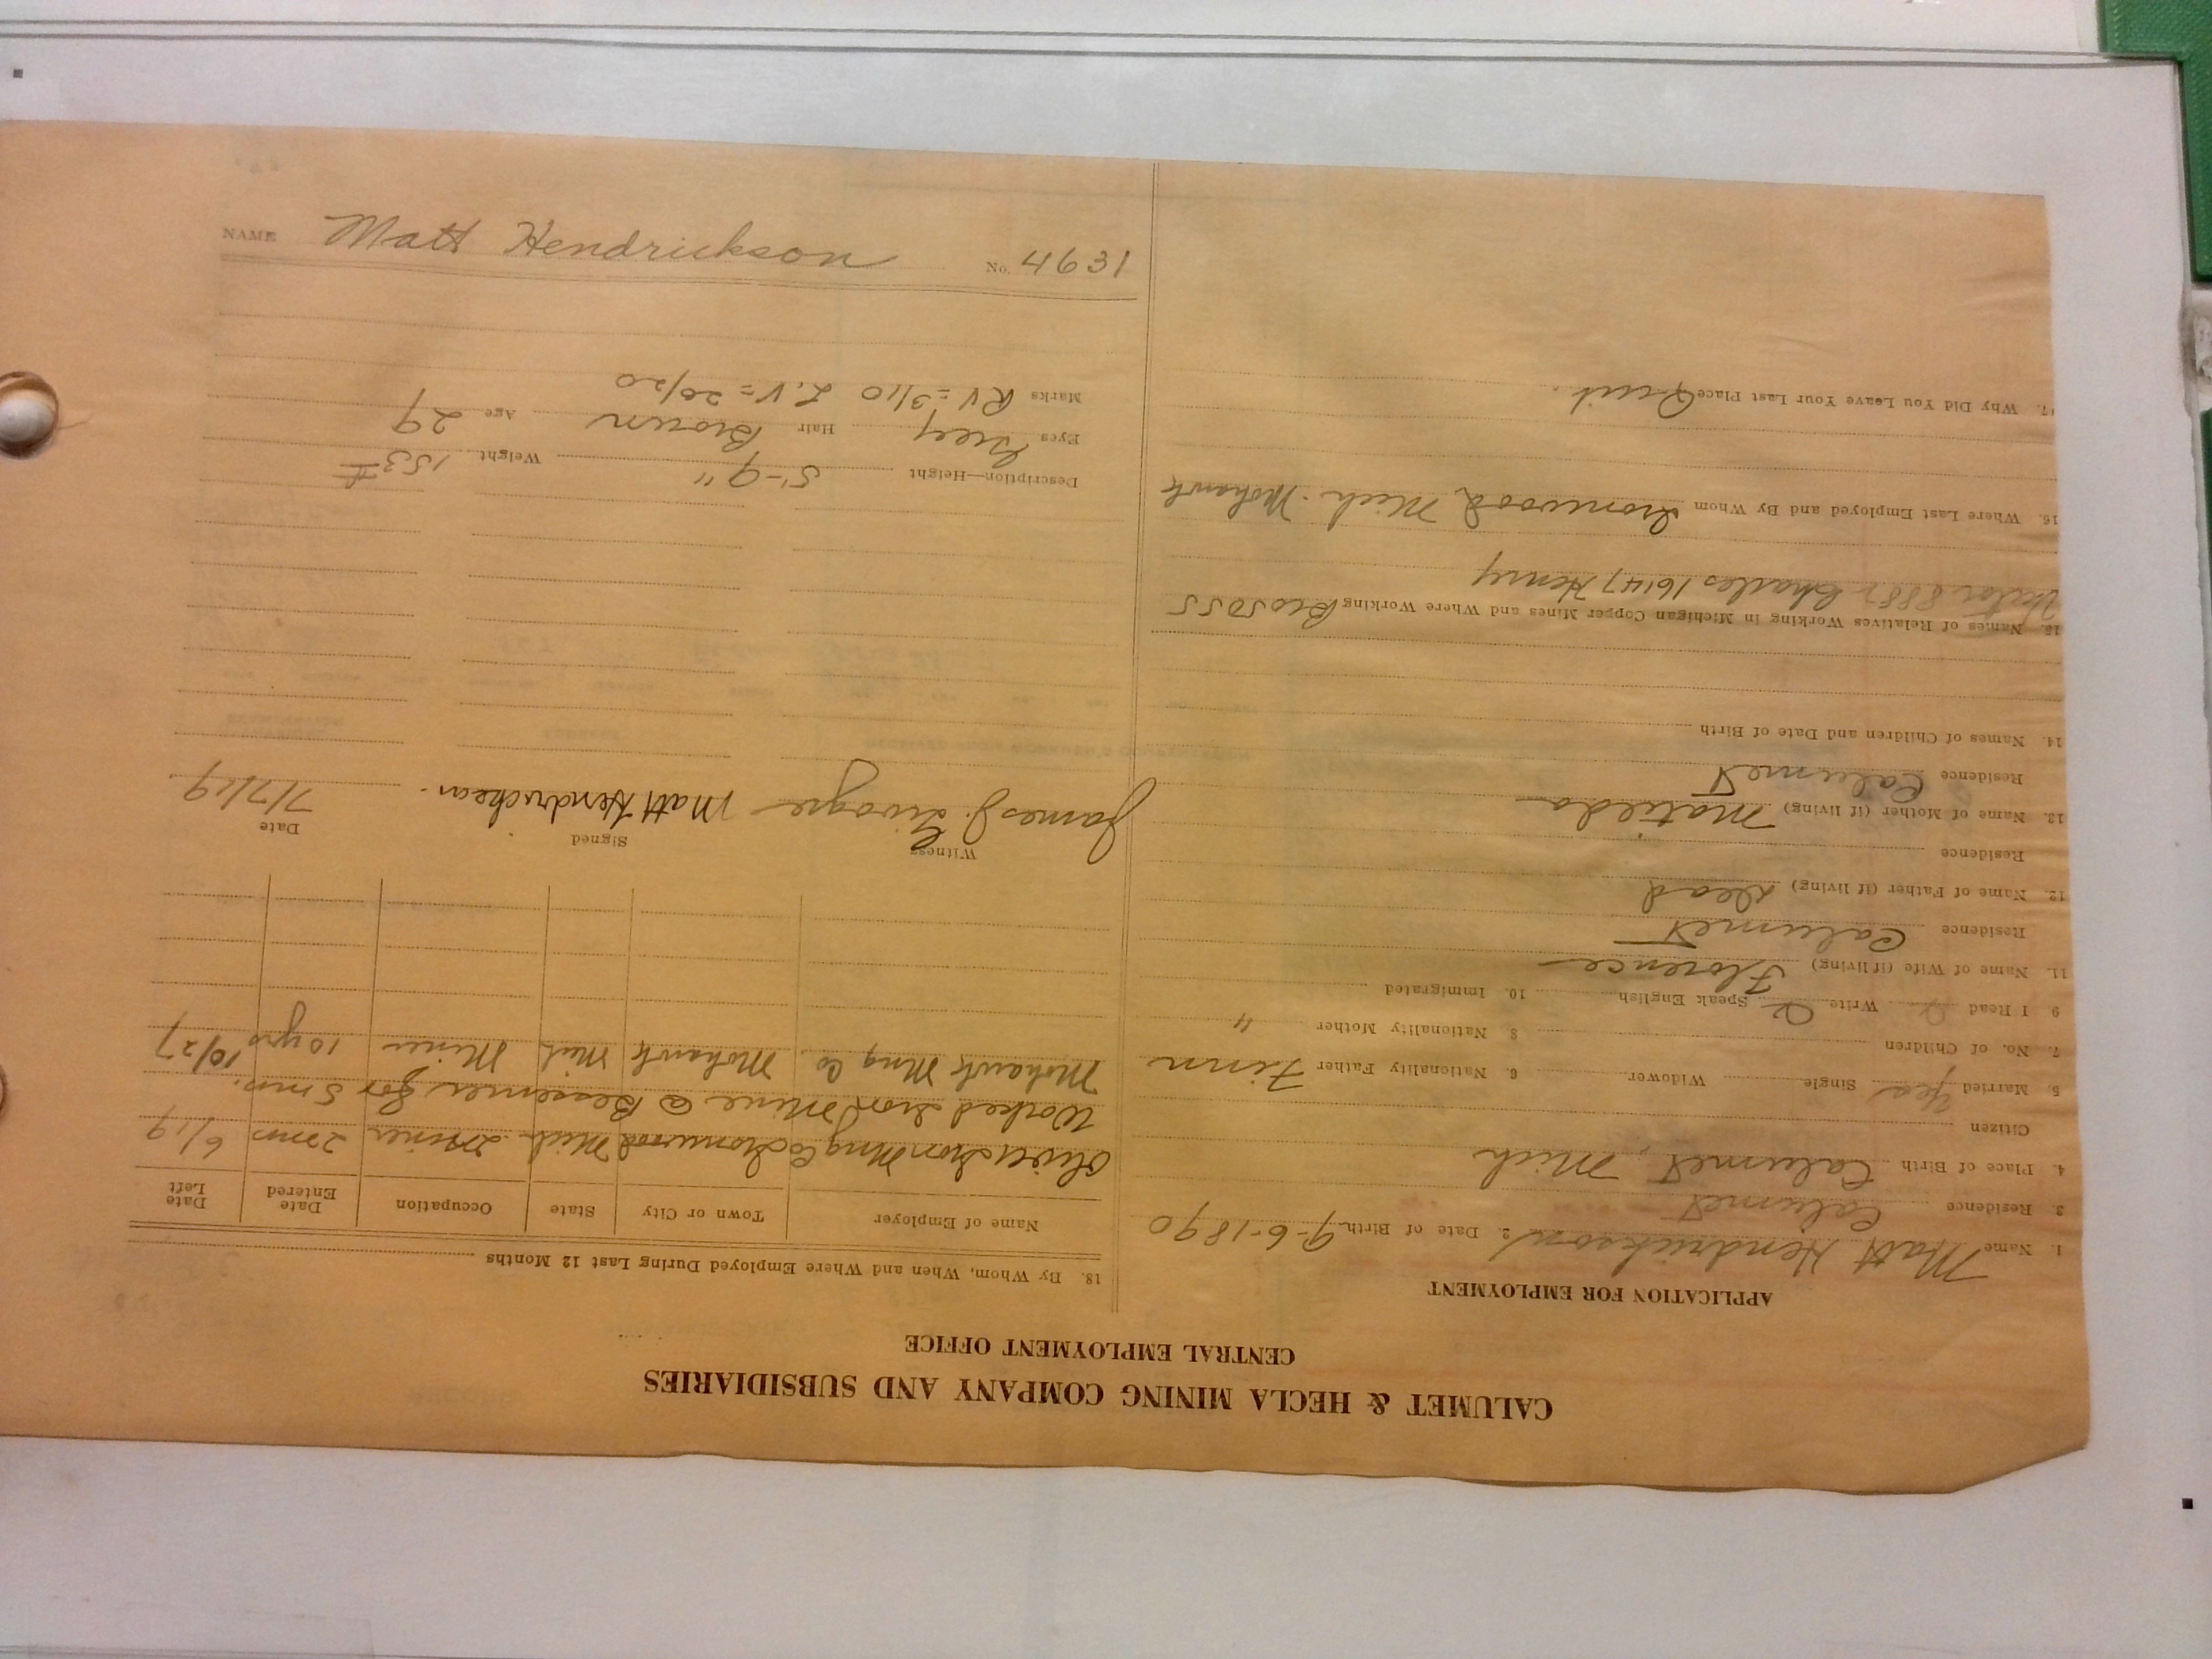 CALUMET & HECLA MINING COMPANY AND SUBSIDIARIES
CENTRAL EMPLOYMENT OFFICE
APPLICATION FOR EMPLOYMENT
1. Name Matt Hendrickson 2. Date of Birth 9-6-1890
3 Residence Calumet
4. Place of Birth Calumet, Mich
Citizen
5. Married Yes Single Widower 6. Nationality Father Finn
7. No. of Children 8. Nationality Mother "
9 I Read Write Speak English 10. Immigrated
11. Name of Wife (if living) Florence
Residence Calumet
12. Name of Father (if living) Dead
Residence
13. Name of Mother (if living) Matilda
Residence Calumet
14. Names of Children and Date of Birth
15. Names of Relatives Working in Michigan Copper Mines and Where Working Bro 5055
Victor 8887 Charles 16147 Henry
16. Where Last Employed and By Whom Ironwood Mich. Mohawk
17. Why Did You Leave Your Last Place Quit.
18. By Whom, When and Where Employed During Last 12 Months
Name of Employer Town or City State Occupation Date Entered Date Left
Oliver Iron Mng Co Ironwood Mich Miner 2 mos 6/19
Worked Iron Mine @ Bessemer for 5 mos.
Mohawk Mng Co Mohawk Mich Miner 10 yrs 10/27
Witness Signed Date
James J. Matt Hendrickson. 7/7/19
Description—Height 5'-9" Weight 153#
Eyes Grey Hair Brown Age 29
Marks RV=3/10 L.V=20/20
NAME Matt Hendrickson No. 4631